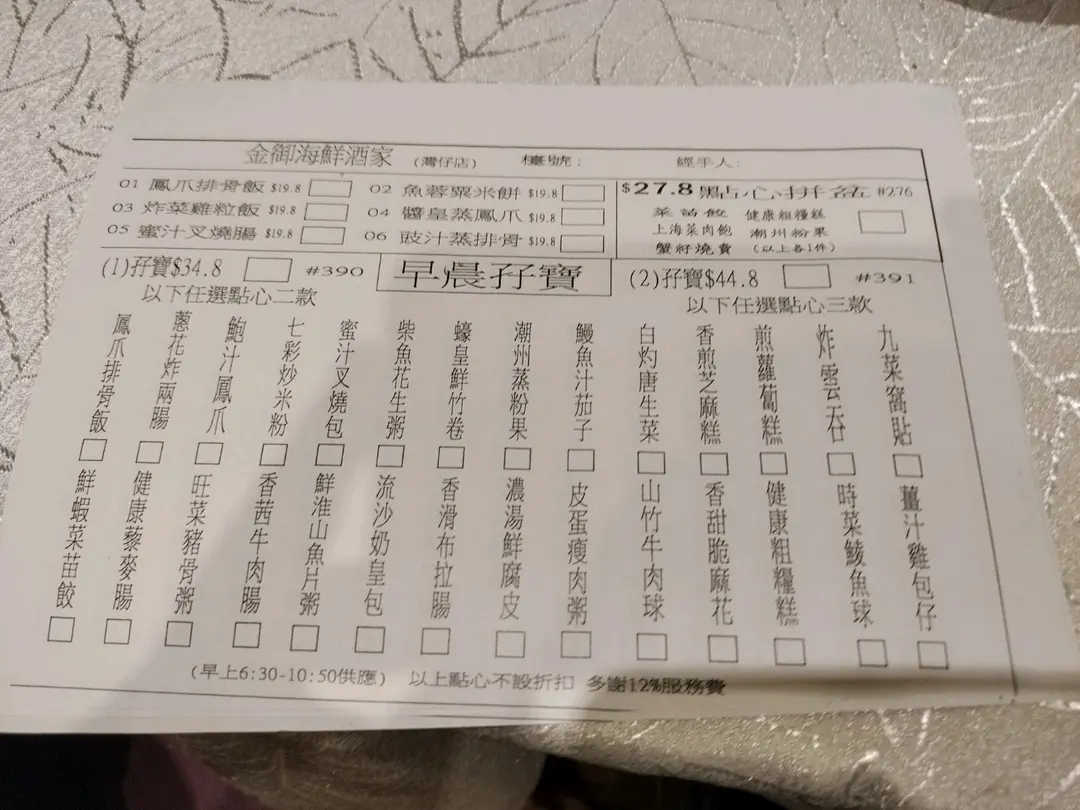 金御海鮮酒家 (灣仔店) 檯號: 經手人:
01 鳳爪排骨飯 $19.8 02 魚蓉粟米餅 $19.8
03 炸菜雞粒飯 $19.8 04 醬皇蒸鳳爪 $19.8
05 蜜汁叉燒腸 $19.8 06 豉汁蒸排骨 $19.8
$27.8點心拼盆 #276
菜苗餃 健康粗糧糕
上海菜肉飽 潮州粉果
蟹籽燒賣 (以上各1件)
(1)孖寶$34.8 #390
以下任選點心二款
早晨孖寶
(2)孖寶$44.8 #391
以下任選點心三款
鳳爪排骨飯
蔥花炸兩腸
鮑汁鳳爪
七彩炒米粉
蜜汁叉燒包
柴魚花生粥
蠔皇鮮竹卷
潮州蒸粉果
鰻魚汁茄子
白灼唐生菜
香煎芝麻糕
煎蘿蔔糕
炸雲吞
九菜窩貼
鮮蝦菜苗餃
健康藜麥腸
旺菜豬骨粥
香茜牛肉腸
鮮淮山魚片粥
流沙奶皇包
香滑布拉腸
濃湯鮮腐皮
皮蛋瘦肉粥
山竹牛肉球
香甜脆麻花
健康粗糧糕
時菜鯪魚球
薑汁雞包仔
(早上6:30-10:50供應) 以上點心不設折扣 多謝12%服務費